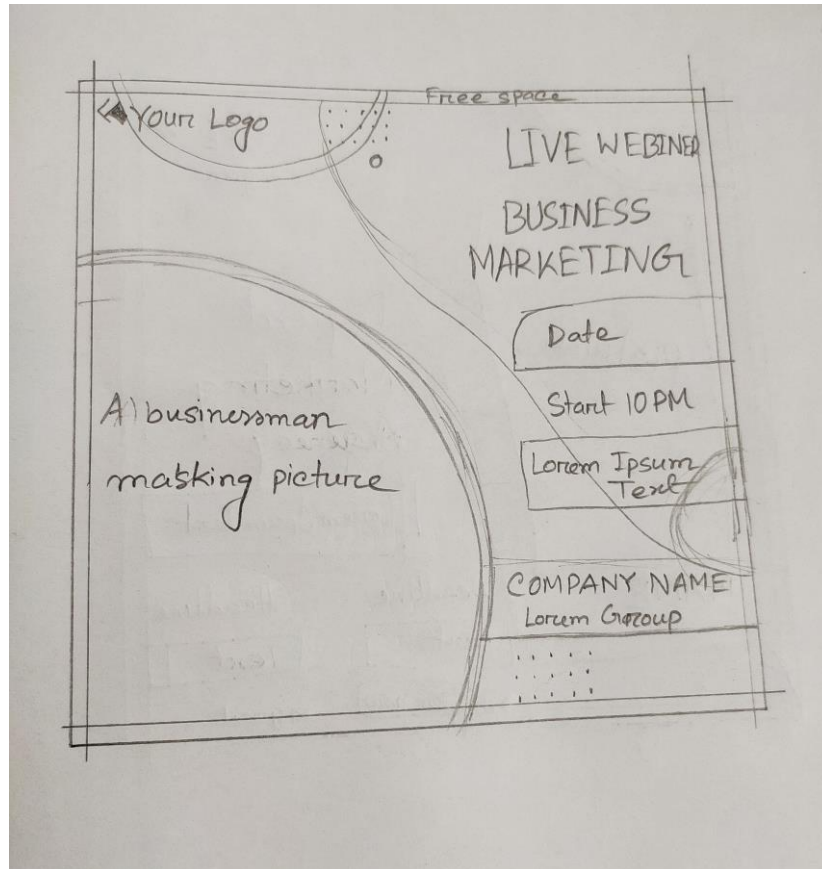 Free space
Your Logo
LIVE WEBINER
BUSINESS
MARKETING
Date
Start 10 PM
Lorem Ipsum
Text
A businessman
masking picture
COMPANY NAME
Lorem Group